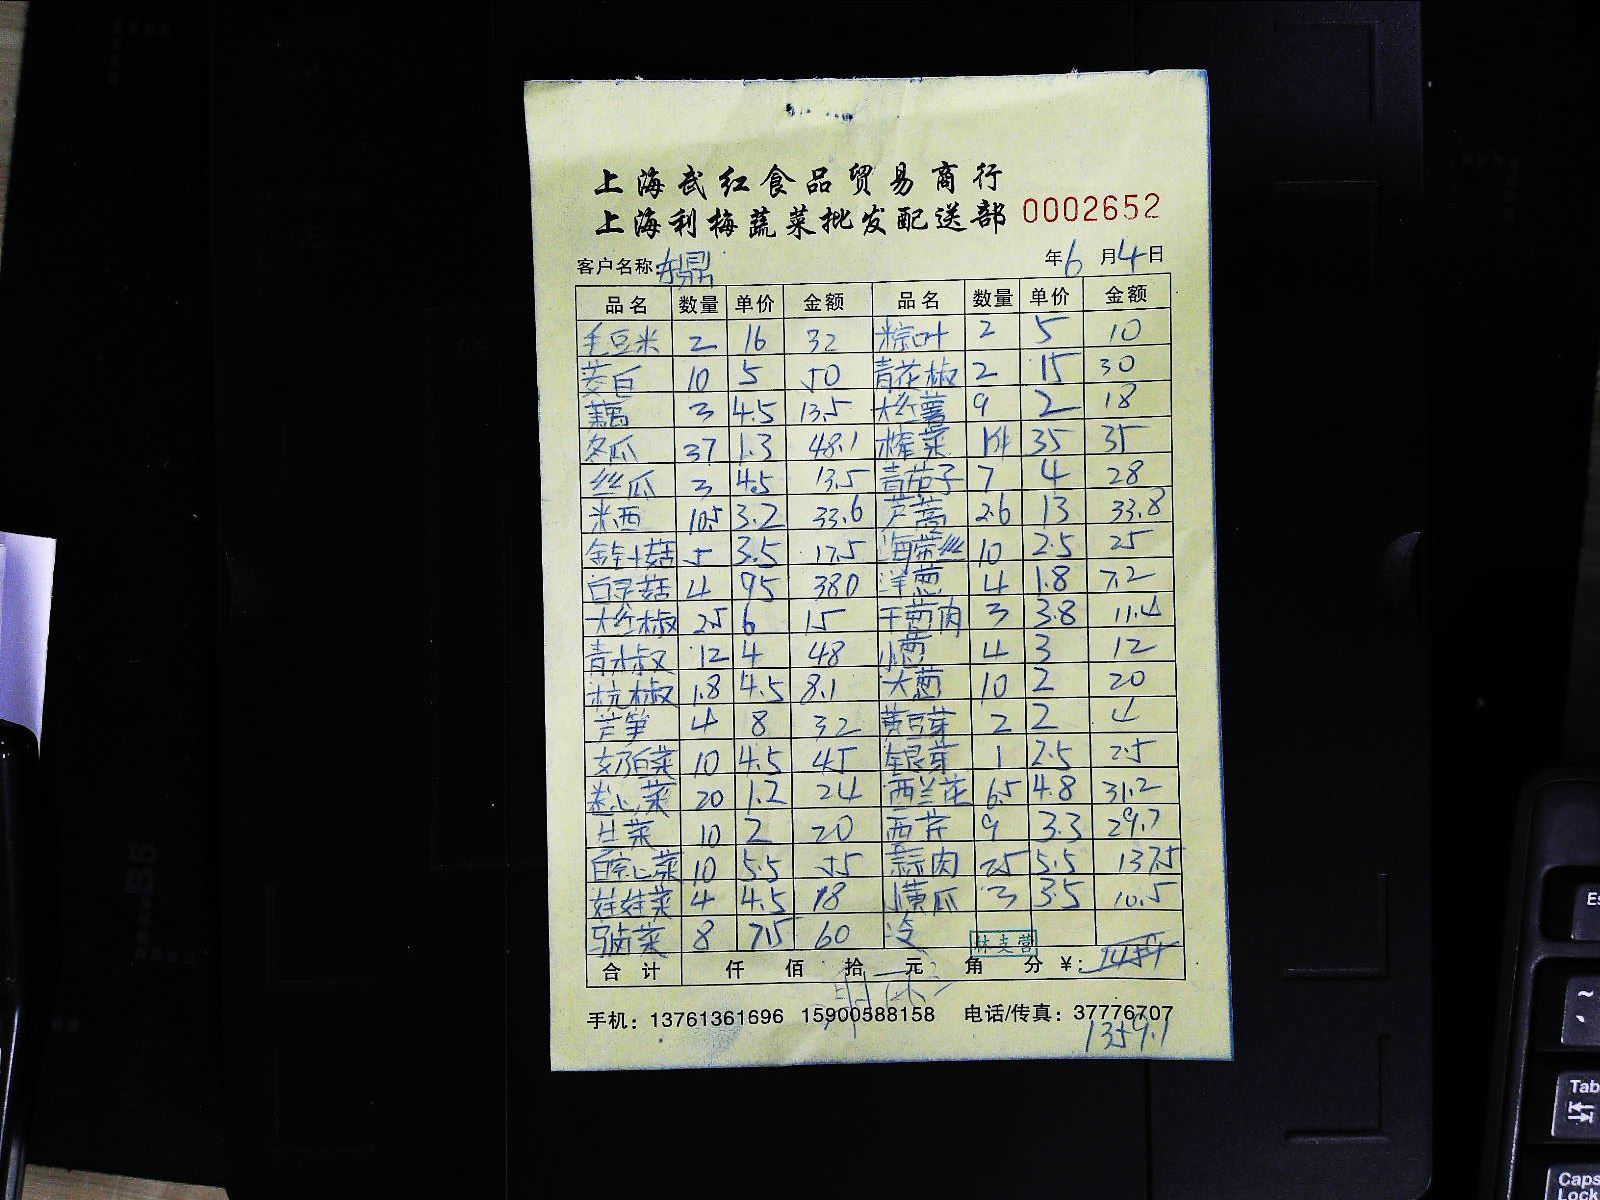 上海武红食品贸易商行
上海利梅蔬菜批发配送部 0002652
客户名称: 东鼎 年6月4日
品名 数量 单价 金额 品名 数量 单价 金额
毛豆米 2 16 32 粽叶 2 5 10
茭白 10 5 50 青花椒 2 15 30
藕 3 4.5 13.5 大红薯 9 2 18
冬瓜 37 1.3 48.1 榨菜 1件 35 35
丝瓜 3 4.5 13.5 青茄子 7 4 28
米西 10.5 3.2 33.6 芦蒿 2.6 13 33.8
金针菇 5 3.5 17.5 海带丝 10 2.5 25
白灵菇 4 95 380 洋葱 4 1.8 7.2
大红椒 2.5 6 15 干葱肉 3 3.8 11.4
青椒 12 4 48 小葱 4 3 12
杭椒 1.8 4.5 8.1 大葱 10 2 20
芦笋 4 8 32 黄豆芽 2 2 4
奶白菜 10 4.5 45 银芽 1 2.5 2.5
卷心菜 20 1.2 24 西兰花 6.5 4.8 31.2
生菜 10 2 20 西芹 9 3.3 29.7
空心菜 10 5.5 55 蒜肉 25 5.5 137.5
娃娃菜 4 4.5 18 小黄瓜 3 3.5 10.5
马兰菜 8 7.5 60
林支营
合计 仟 佰 拾 元 角 分 ¥:
手机: 13761361696 15900588158 电话/传真: 37776707
1359.1